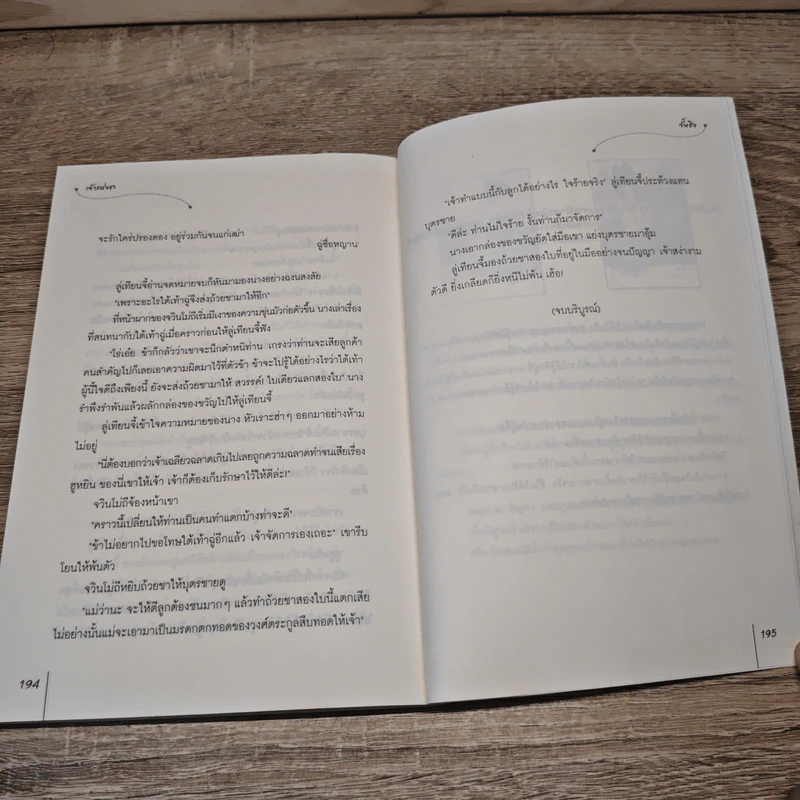 เจ้าแห่งชา
จะรักใคร่ปรองดอง อยู่ร่วมกันจนแก่เฒ่า
ฉู่ซื่อหญาน
ลู่เทียนจี้อ่านจดหมายจบก็หันมามองนางอย่างฉงนสงสัย
"เพราะอะไรใต้เท้าฉู่จึงส่งถ้วยชามาให้อีก"
ที่หน้าผากของจวินโม่ถีเริ่มมีเงาของความขุ่นมัวก่อตัวขึ้น นางเล่าเรื่อง
ที่สนทนากับใต้เท้าฉู่เมื่อคราวก่อนให้ลู่เทียนจี้ฟัง
"โธ่เอ๊ย ข้าก็กลัวว่าเขาจะนึกตำหนิท่าน เกรงว่าท่านจะเสียลูกค้า
คนสำคัญไปก็เลยเอาความผิดมาไว้ที่ตัวข้า ข้าจะไปรู้ได้อย่างไรว่าใต้เท้า
ผู้นี้ใจดีถึงเพียงนี้ ยังจะส่งถ้วยชามาให้ สวรรค์! ใบเดียวแลกสองใบ" นาง
รำพึงรำพันแล้วผลักกล่องของขวัญไปให้ลู่เทียนจี้
ลู่เทียนจี้เข้าใจความหมายของนาง หัวเราะฮ่าๆ ออกมาอย่างห้าม
ไม่อยู่
"นี่ต้องบอกว่าเจ้าเฉลียวฉลาดเกินไปเลยถูกความฉลาดทำจนเสียเรื่อง
ฮูหยิน ของนี่เขาให้เจ้า เจ้าก็ต้องเก็บรักษาไว้ให้ดีล่ะ!"
จวินโม่ถีจ้องหน้าเขา
"คราวนี้เปลี่ยนให้ท่านเป็นคนทำแตกบ้างท่าจะดี"
"ข้าไม่อยากไปขอโทษใต้เท้าฉู่อีกแล้ว เจ้าจัดการเองเถอะ" เขารีบ
โยนให้พ้นตัว
จวินโม่ถีหยิบถ้วยชาให้บุตรชายดู
"แม่ว่านะ จะให้ดีลูกต้องซนมากๆ แล้วทำถ้วยชาสองใบนี้แตกเสีย
ไม่อย่างนั้นแม่จะเอามาเป็นมรดกตกทอดของวงศ์ตระกูลสืบทอดให้เจ้า"
194
จั้นชิง
"เจ้าทำแบบนี้กับลูกได้อย่างไร ใจร้ายจริง" ลู่เทียนจี้ประท้วงแทน
บุตรชาย
"ดีล่ะ ท่านไม่ใจร้าย งั้นท่านก็มาจัดการ"
นางเอากล่องของขวัญยัดใส่มือเขา แย่งบุตรชายมาอุ้ม
ลู่เทียนจี้มองถ้วยชาสองใบที่อยู่ในมืออย่างจนปัญญา เจ้าสง่างาม
ตัวดี ยิ่งเกลียดก็ยิ่งหนีไม่พ้น เฮ้อ!
(จบบริบูรณ์)
195